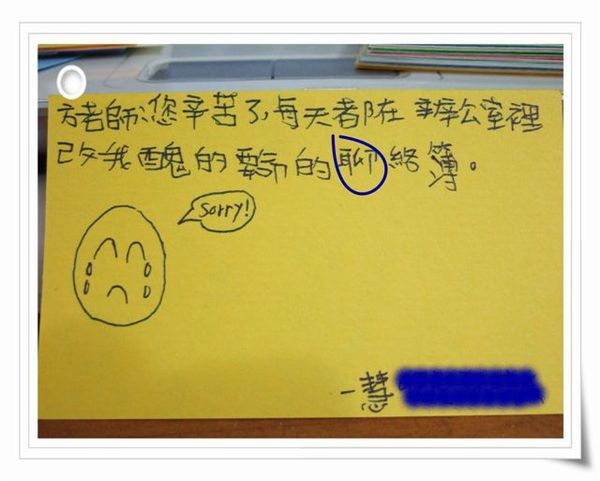 方老師:您辛苦了,每天都在辦公室裡
改我醜的要命的聊絡簿。
sorry!
一慧